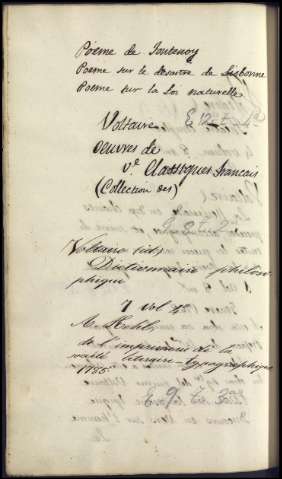 Poëme de Fontenoy
Poeme sur le désastre de Lisbonne
Poeme sur la Loi naturelle
Voltaire
Oeuvres de
v.e Classiques francais
(Collection des)
Voltaire
Dictionnaire philoso
phique
7 vol
de l'imprimerie de la
litéraire-typographique
1785